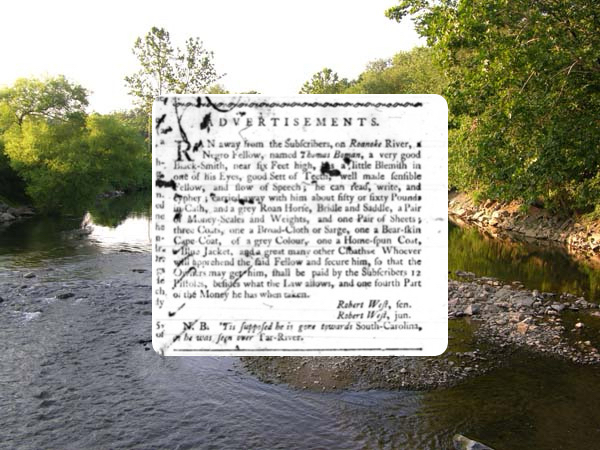 ADVERTISEMENTS.
RAN away from the Subscribers, on Roanoke River, a
Negro Fellow, named Thomas Boman, a very good
Black-Smith, near six Feet high, has a little Blemish in
one of his Eyes, good Sett of Teeth, well made sensible
Fellow, and slow of Speech; he can read, write, and
cypher; carried away with him about fifty or sixty Pounds
in Cash, and a grey Roan Horse, Bridle and Saddle, a Pair
of Money-Scales and Weights, and one Pair of Sheets;
three Coats, one a Broad-Cloth or Sarge, one a Bear-skin
Cape-Coat, of a grey Colour, one a Home-spun Coat,
a Blue Jacket, and a great many other Cloaths: Whoever
will apprehend the said Fellow and secure him, so that the
Owners may get him, shall be paid by the Subscribers 12
Pistoles, besides what the Law allows, and one fourth Part
of the Money he has when taken.
Robert West, sen.
Robert West, jun.
N. B. 'Tis supposed he is gone towards South-Carolina,
as he was seen over Tar-River.